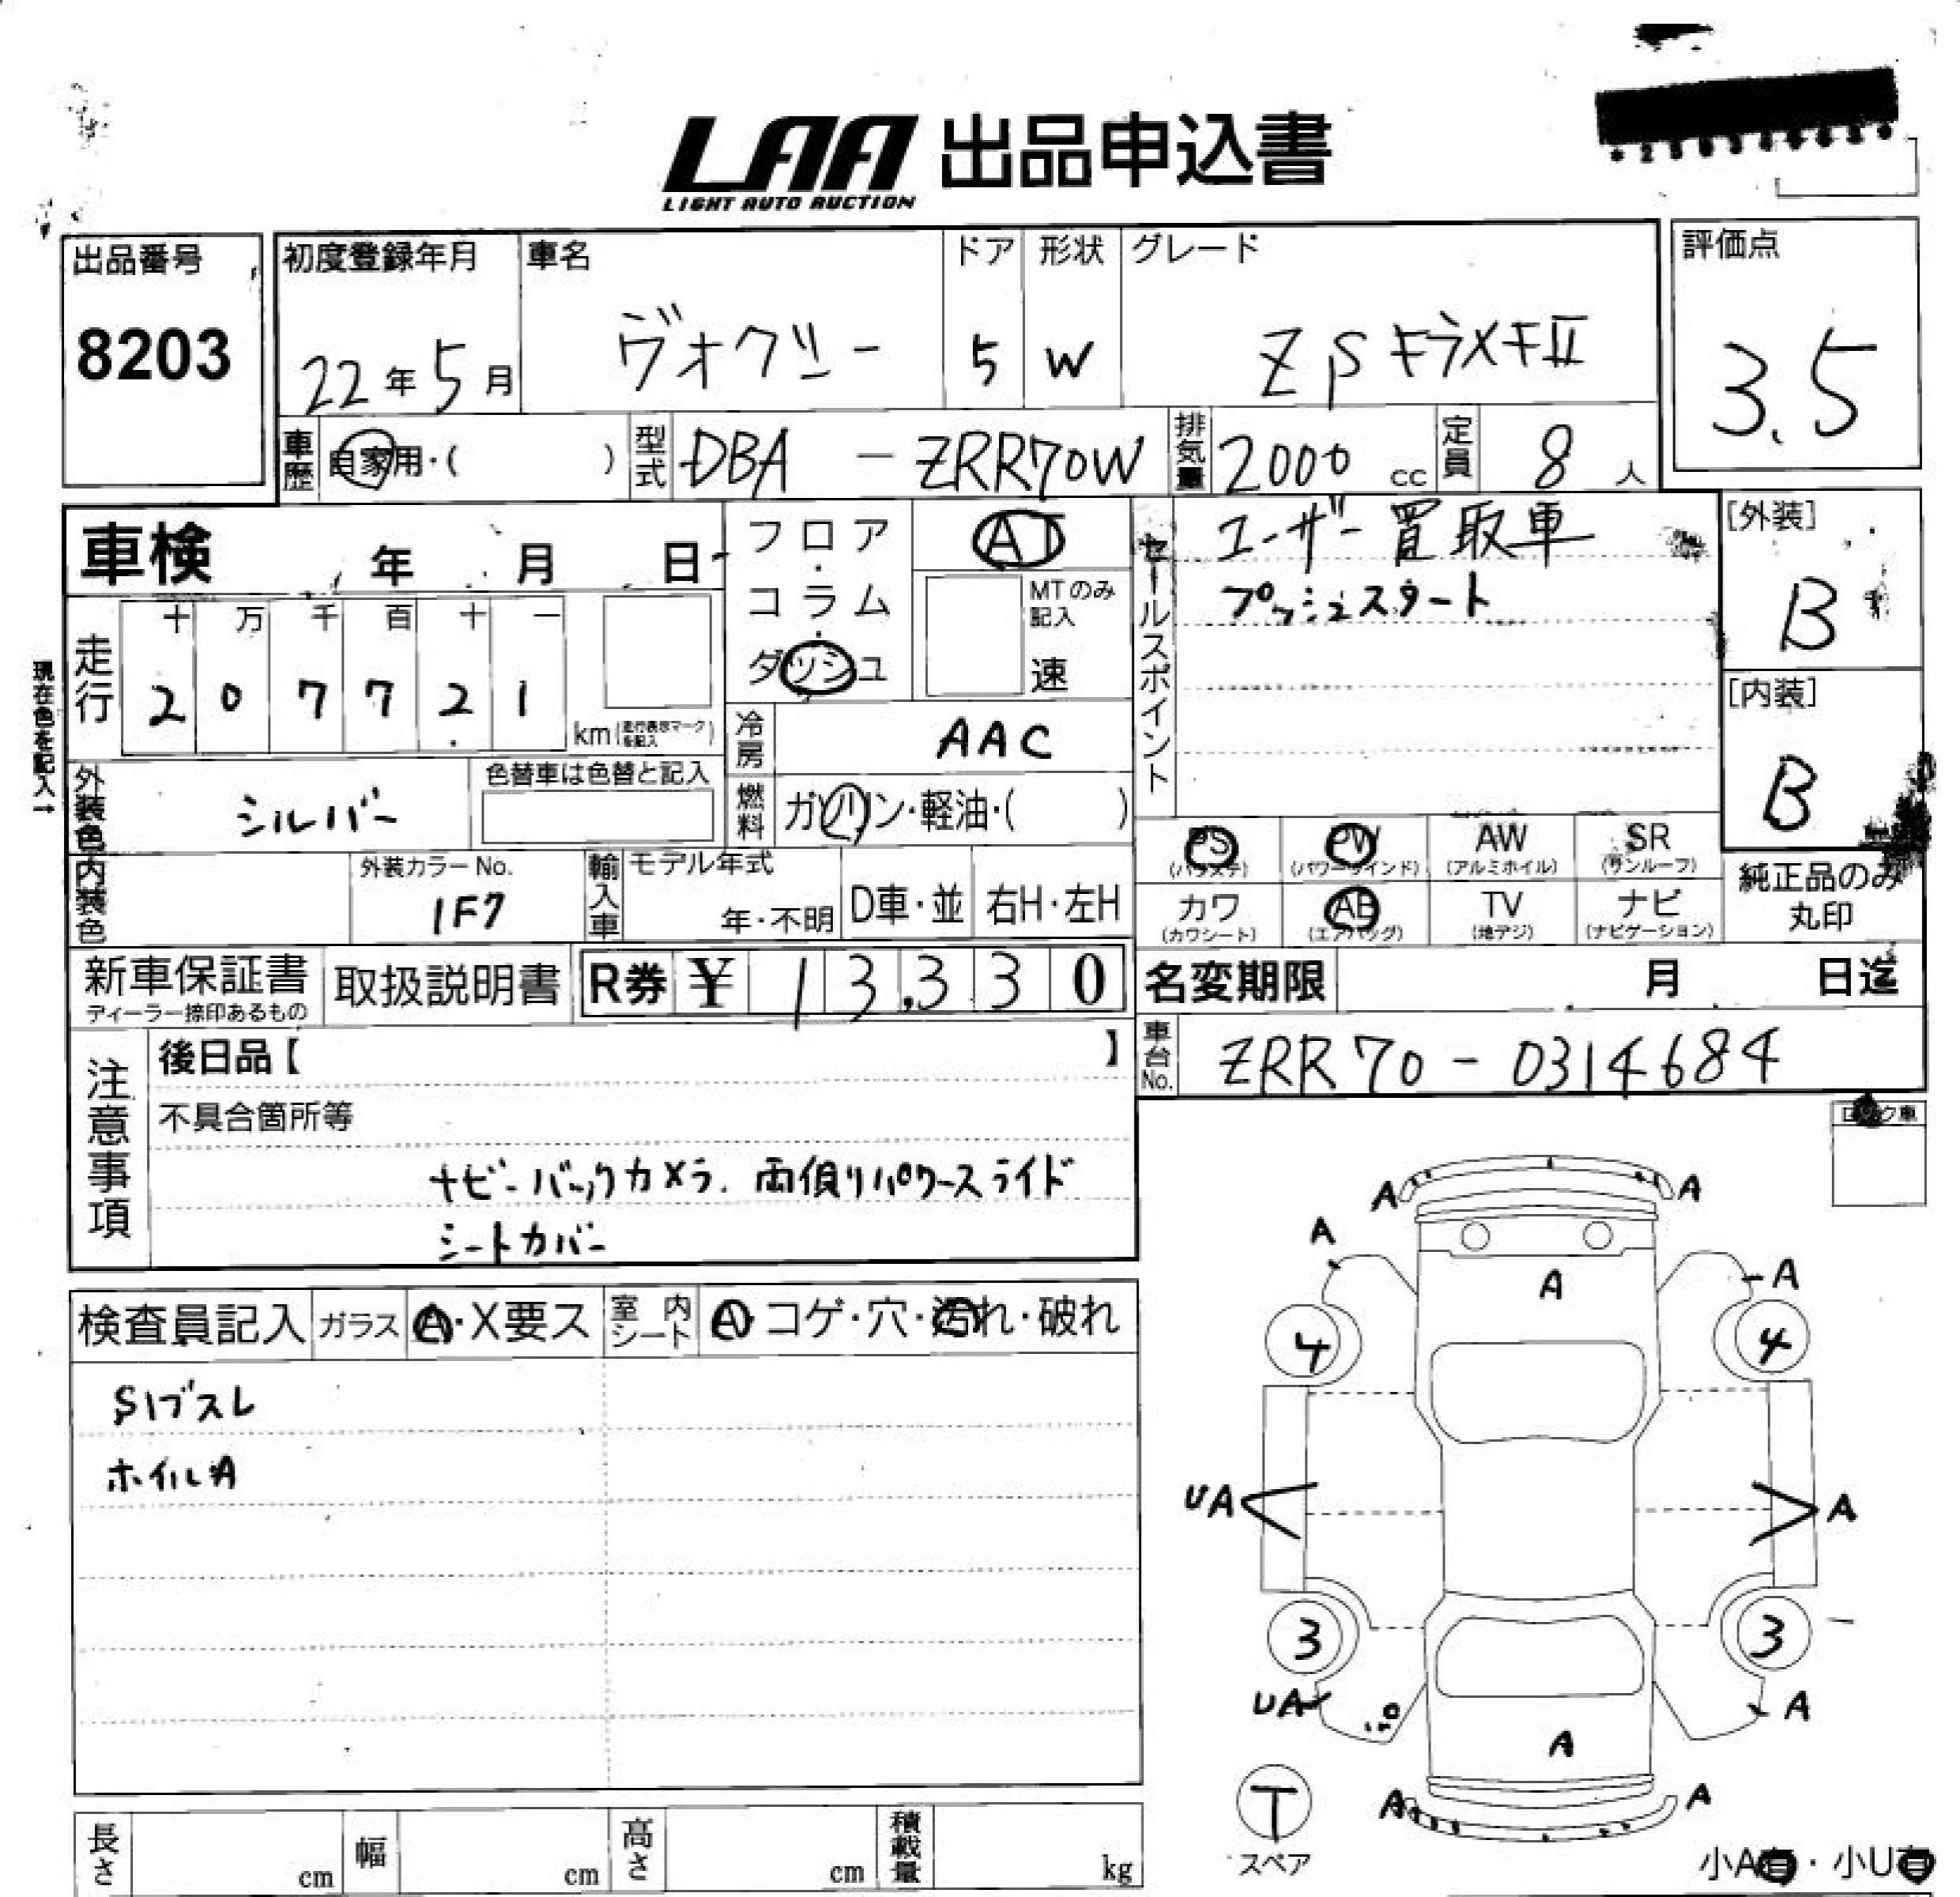 LAA 出品申込書
LIGHT AUTO AUCTION
出品番号
8203
初度登録年月
22年5月
車名
ヴォクシー
ドア
5
形状
W
グレード
ZS キラメキII
評価点
3.5
車歴
自家用・( )
型式
DBA - ZRR70W
排気量
2000 cc
定員
8 人
車検 年 月 日
フロア・コラム・ダッシュ
AT
MTのみ記入
速
セールスポイント
ユーザー買取車
プッシュスタート
[外装]
B
[内装]
B
現在色を記入→
走行
十 万 千 百 十 一
2 0 7 7 2 1
km (走行表示マークを記入)
冷房
AAC
外装色
シルバー
色替車は色替と記入
燃料
ガソリン・軽油・( )
内装色
外装カラーNo.
1F7
輸入車
モデル年式
年・不明
D車・並
右H・左H
PS (パワステ)
PW (パワーウインド)
AW (アルミホイル)
SR (サンルーフ)
カワ (カワシート)
AB (エアバッグ)
TV (地デジ)
ナビ (ナビゲーション)
純正品のみ
丸印
新車保証書
ディーラー捺印あるもの
取扱説明書
R券 ¥ 13,330
名変期限 月 日迄
車台No.
ZRR70-0314684
注意事項
後日品【 】
不具合箇所等
ナビ・バックカメラ. 両側パワースライド
シートカバー
検査員記入
ガラス
A・X要ス
室内シート
A・コゲ・穴・汚れ・破れ
S1ブスレ
ホイルA
ロック車
A A
A A
A
4 4
UA A
3 3
UA A
A
A A
T
スペア
小A有・小U有
長さ cm
幅 cm
高さ cm
積載量 kg